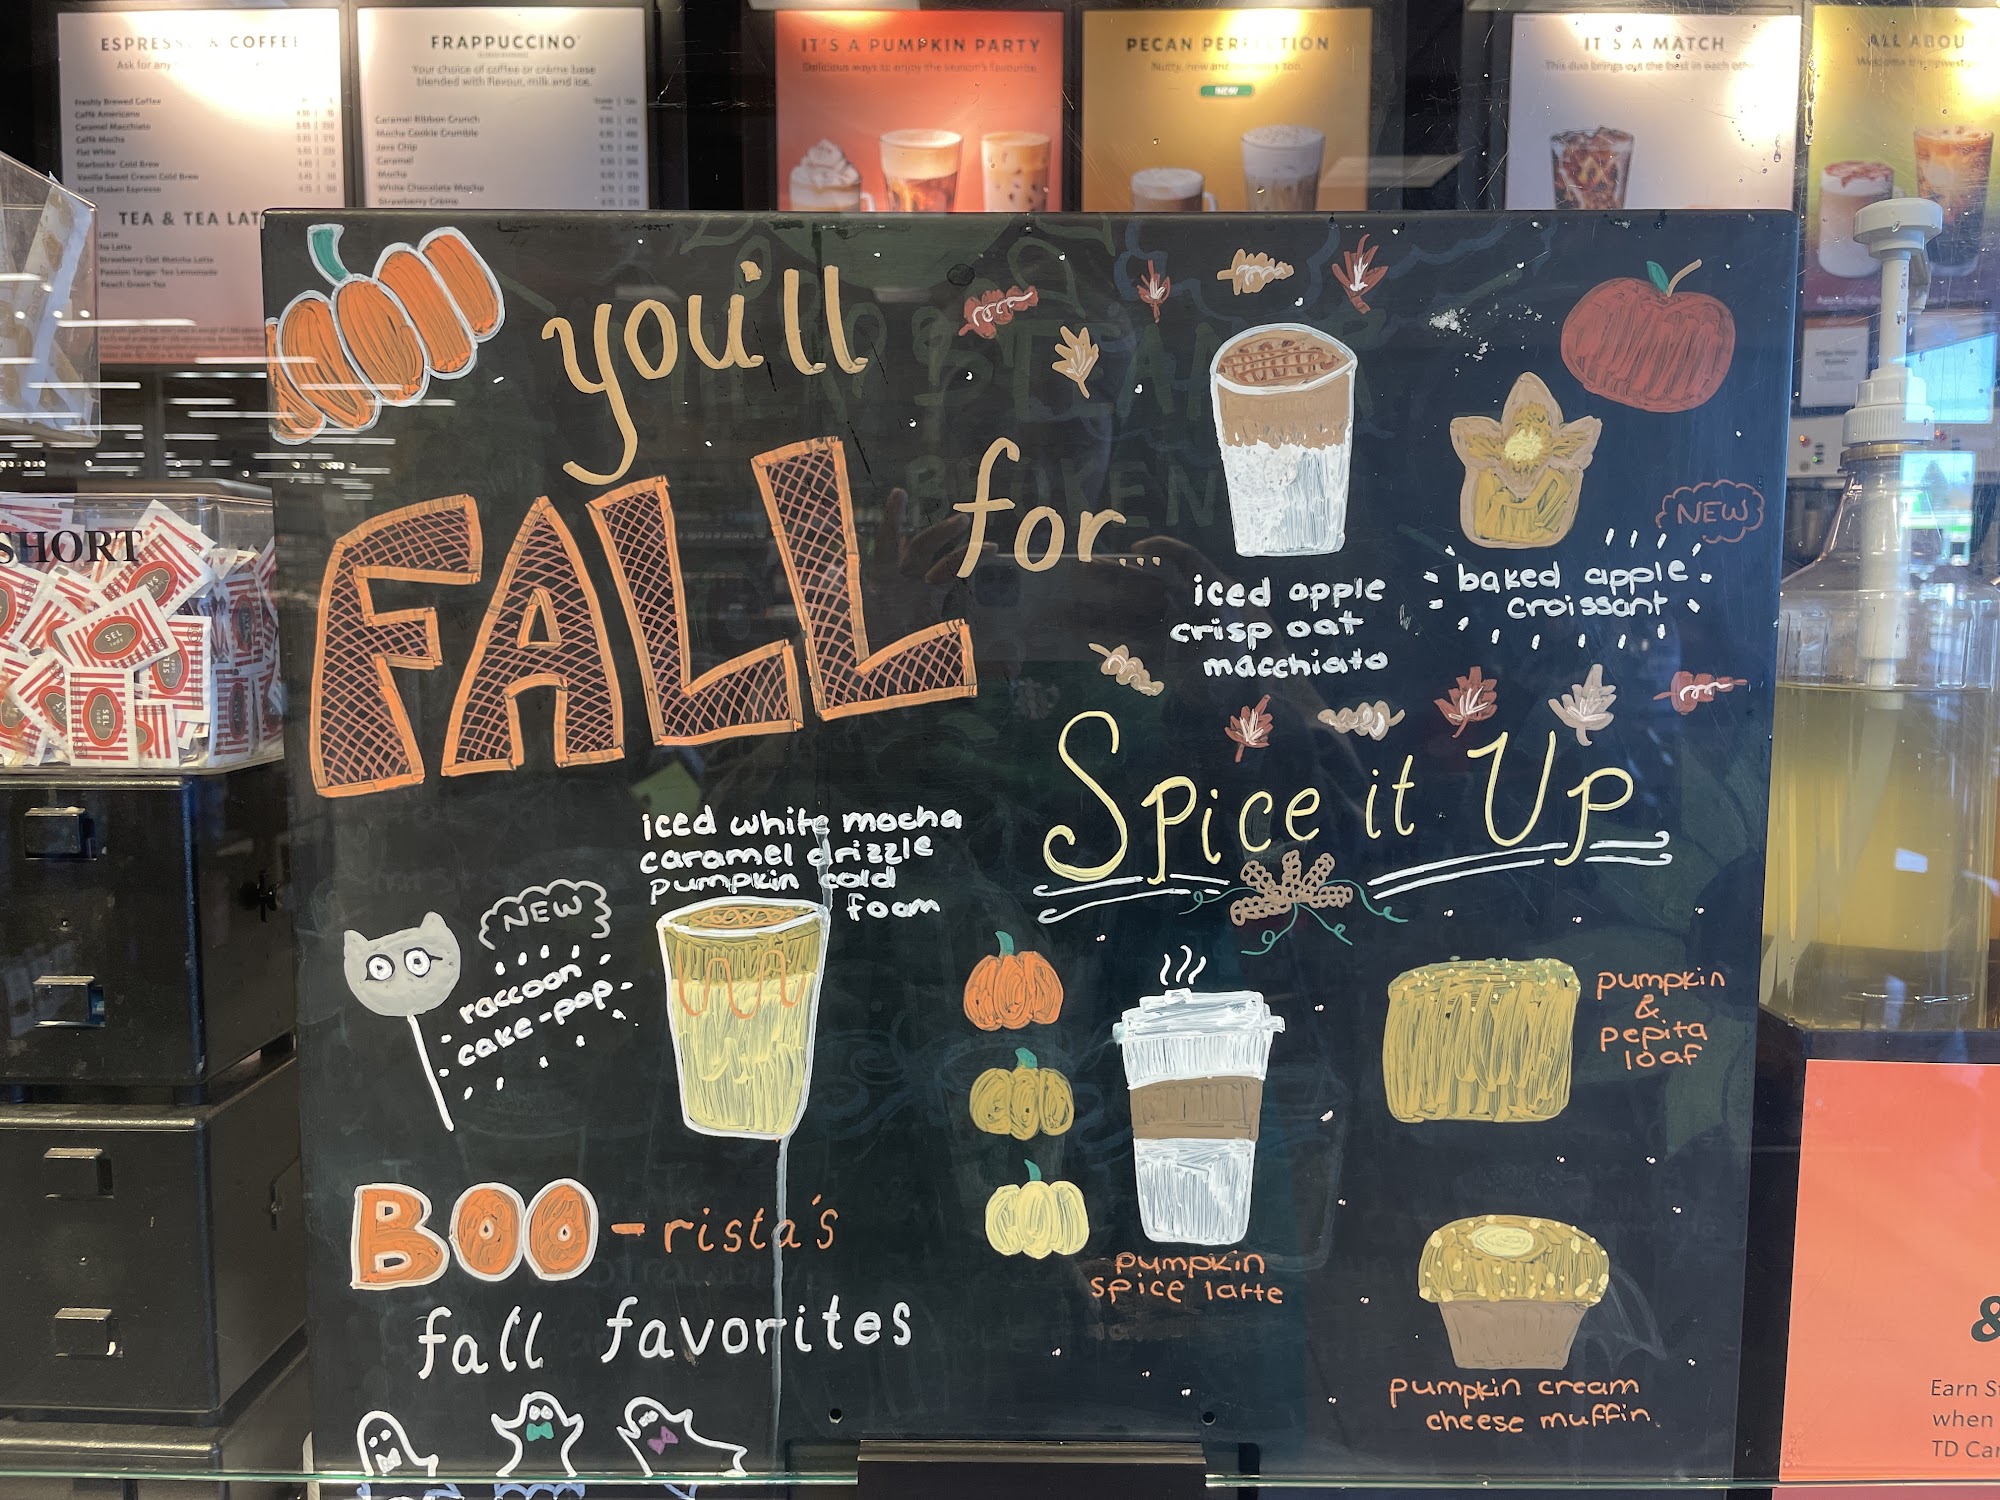 ESPRESSO & COFFEE
Ask for any
Freshly Brewed Coffee
Caffè Americano
Caramel Macchiato
Caffè Mocha
Flat White
Starbucks® Cold Brew
Vanilla Sweet Cream Cold Brew
Iced Shaken Espresso
TEA & TEA LAT
Latte
Strawberry Oat Matcha Latte
Passion Tango® Tea Lemonade
Peach Green Tea
FRAPPUCCINO®
Your choice of coffee or crème base
blended with flavour, milk and ice.
Caramel Ribbon Crunch
Mocha Cookie Crumble
Java Chip
Caramel
Mocha
White Chocolate Mocha
Strawberry Crème
IT'S A PUMPKIN PARTY
Delicious ways to enjoy the season's favourite.
PECAN PERFECTION
Nutty, new and
NEW
IT'S A MATCH
This duo brings out the best in each other
ALL ABOU
SHORT
SEL
you'll
FALL for...
iced apple
crisp oat
macchiato
NEW
baked apple
croissant
Spice it Up
iced white mocha
caramel drizzle
pumpkin cold
foam
NEW
raccoon
cake-pop
pumpkin
&
pepita
loaf
pumpkin
spice latte
pumpkin cream
cheese muffin
BOO-rista's
fall favorites
&
Earn St
when
TD Car